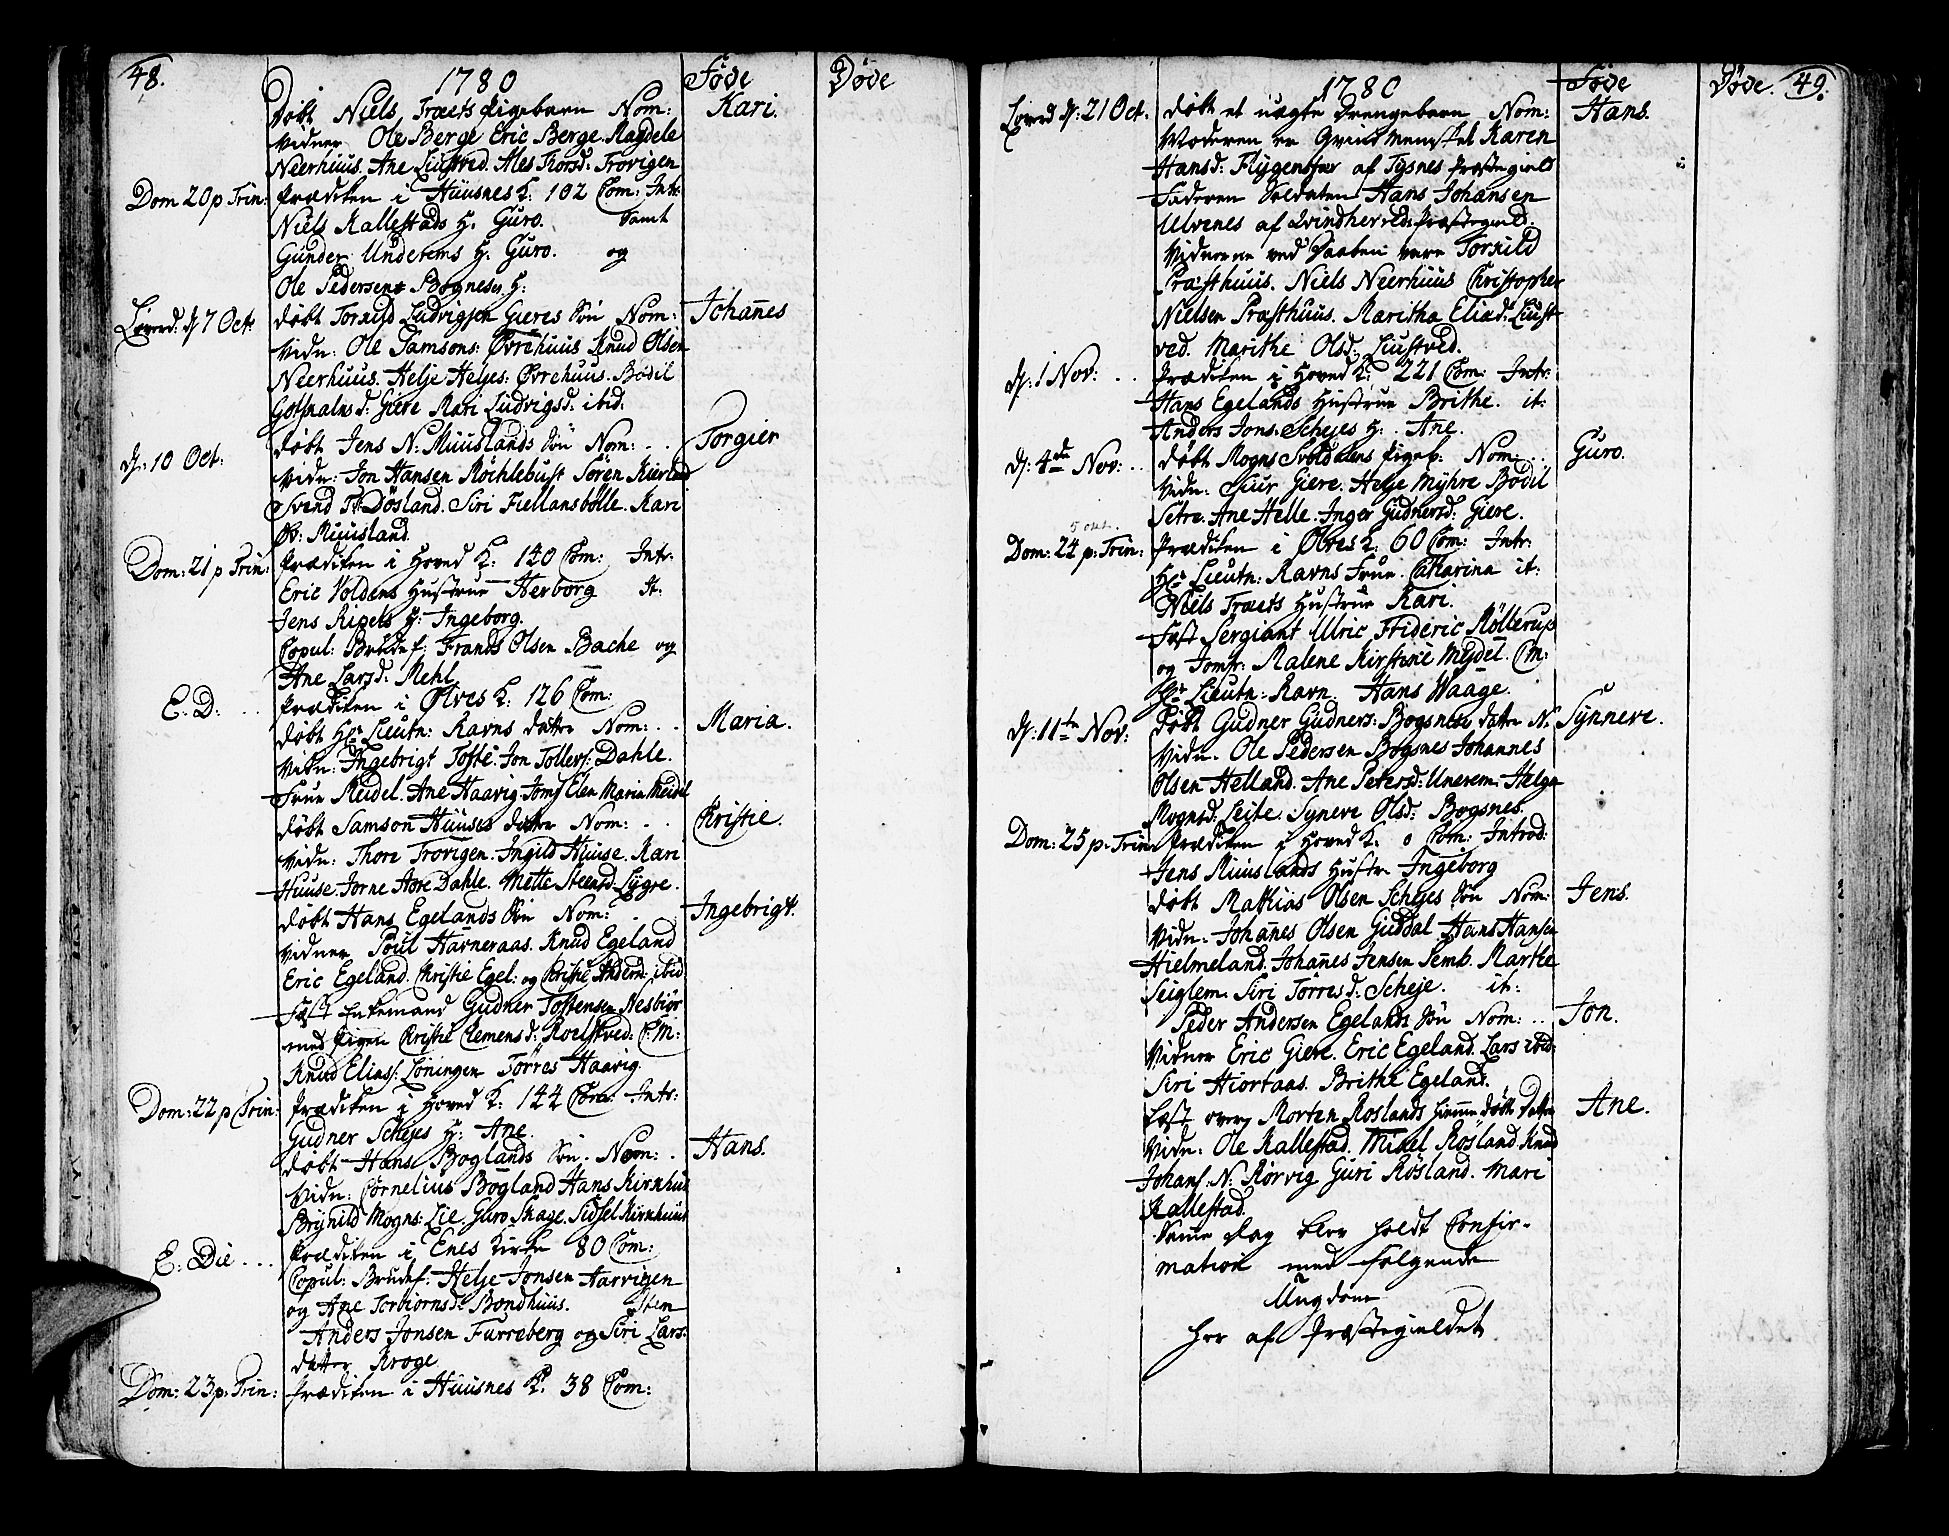 48.
1780
Føde
Døde
Døbt Niels Træets Pigebarn Nom: Kari.
Vidner Ole Berge Eric Berge Magdele
Neerhuus. Ane Liustved. Ales Thorsd: Trovigen
Dom 20 p Trin: Prædiken i Huusnes K: 102 Com: Intr:
Niels Kallestads H: Guro. samt
Gunder Underems H: Guro. og
Ole Pedersens Bognes H:
Løverd: d: 7 Oct: døbt Tornild Ludvigsen Gieres Søn Nom: Johañes
Vidn: Ole Samsons: Øvrehuus Knud Olsen
Neerhuus. Helje Heljes: Øvrehuus. Bødil
Gotskalks d: Giere Kari Ludvigsd: ibid:
d: 10 Oct: døbt Jens N: Muuslands Søn Nom: Torgier
Vidn: Jon Hansen Röchlebust Sören Kierland
Svend Døsland. Siri Fiellansbølle. Kari
Øv: Muusland.
Dom: 21 p Trin: Prædiken i Hoved K: 140 Com: Intr:
Eric Voldens Hustrue Herborg It:
Jens Ripels H: Ingeborg.
Copul: Brudef: Frands Olsen Bache og
Ane Larsd: Mehl
E: D: Prædiken i Ølves K: 126 Com:
døbt Hr Lieutn: Ravns datter Nom: Maria.
Vidn: Ingebrigt Tofte. Jon Tollefs: Dahle.
Frue Meidel. Ane Haavig. Jomf Elen Maria Meidel
døbt Samson Huuses datter Nom: Christie.
Vidn: Thore Trovigen. Ingild Huuse. Kari
Huuse. Jorne Aare Dahle. Mette Steensd: Lygre.
døbt Hans Egelands Søn Nom: Ingebrigt.
Vidner Poul Havneraas. Knud Egeland
Eric Egeland. Christie Egel: og Christie Andersd: ibid
Fæst Enkemand Gudner Tostensen Nesbiør
med Pigen Christie Clemensd: Roelstved. C:M:
Knud Elias: Løningen Törres Haavig.
Dom: 22 p Trin: Prædiken i Hoved K: 144 Com: Intr:
Gudner Schejes H: Ane.
døbt Hans Boglands Søn. Nom: Hans.
Vidn: Cornelius Bogland Hans Kirnhus
Brynild Mogns: Lie. Guro Skage. Sidsel Kirnhuus
E: Die Prædiken i Enes Kirke 80 Com:
Copul: Brudef: Helje Jonsen Aarvigen
og Ane Torbiornsd: Bondhuus. Item
Anders Jonsen Furreberg og Siri Lars
datter Kroge.
Dom: 23 p: Trin: Prædiken i Huusnes K: 38 Com:
1780
Føde
Døde.
49.
Løverd d: 21 Oct. døbt et uægte Drengebarn Nom: Hans.
Moderen er Qvindmennsket Karen
Hansd: Flygensfær af Tysnes Præstegield
Faderen Soldaten Hans Johansen
Ulvenes af Qvindherreds Præstegield.
Vidnerne ved Daaben vare Tornild
Præsthuus. Niels Neerhuus Christopher
Nielsen Præsthuus. Maritha Eliæd: Liust
ved. Marithe Olsd: Liustved.
d: 1 Nov: Prædiken i Hoved K: 221 Com: Intr:
Hans Egelands Hustrue Brithe. it:
Anders Jons: Schejes H: Ane.
d: 4de Nov: døbt Mogns Svoldalens Pigeb: Nom: Guro.
Vidn: Siur Giere. Helje Myhre Bødil
Setre. Ane Helle. Inger Gudnersd: Giere.
5 okt.
Dom: 24 p: Trin: Prædiken i Ølves K: 60 Com: Intr:
Hr Lieutn: Ravns Frue Catharina it:
Niels Træets Hustrue Kari.
Fæst Sergiant Ulric Frideric Röllerup
og Jomfr: Malene Kirstine Meidel. C:M:
Hr Lieutn: Ravn. Hans Waage.
d: 11te Nov: døbt Gudner Gudners: Bogsnes datter N: Synneve.
Vidn: Ole Pedersen Bogsnes Johannes
Olsen Helland. Ane Petersd: Unerem. Helga
Mognsd: Leite. Syneve Olsd: Bogsnes.
Dom: 25 p: Trin: Prædiken i Hoved K. 0 Com: Introd:
Jens Muuslands Hustr. Ingeborg
døbt Mathias Olsen Schejes Søn Nom: Jens.
Vidn: Johanes Olsen Guddal Hans Hansen
Hielmeland. Johañes Jensen Semb. Marthe
Seiglem. Siri Törresd: Scheje. it:
Peder Andersen Egelands Søn Nom: Jon.
Vidner Eric Giere. Eric Egeland. Lars ibid:
Siri Hiortaas. Brithe Egeland.
Læst over Morten Roslands hiemme døbt datter Ane.
Vidn: Ole Kallestad. Mikel Røsland Knud
Johans: N: Rørvig Guri Røsland. Mari
Kallestad.
Samme dag blev holdt Confir-
mation med følgende
Ungdom
her af Præstegieldet